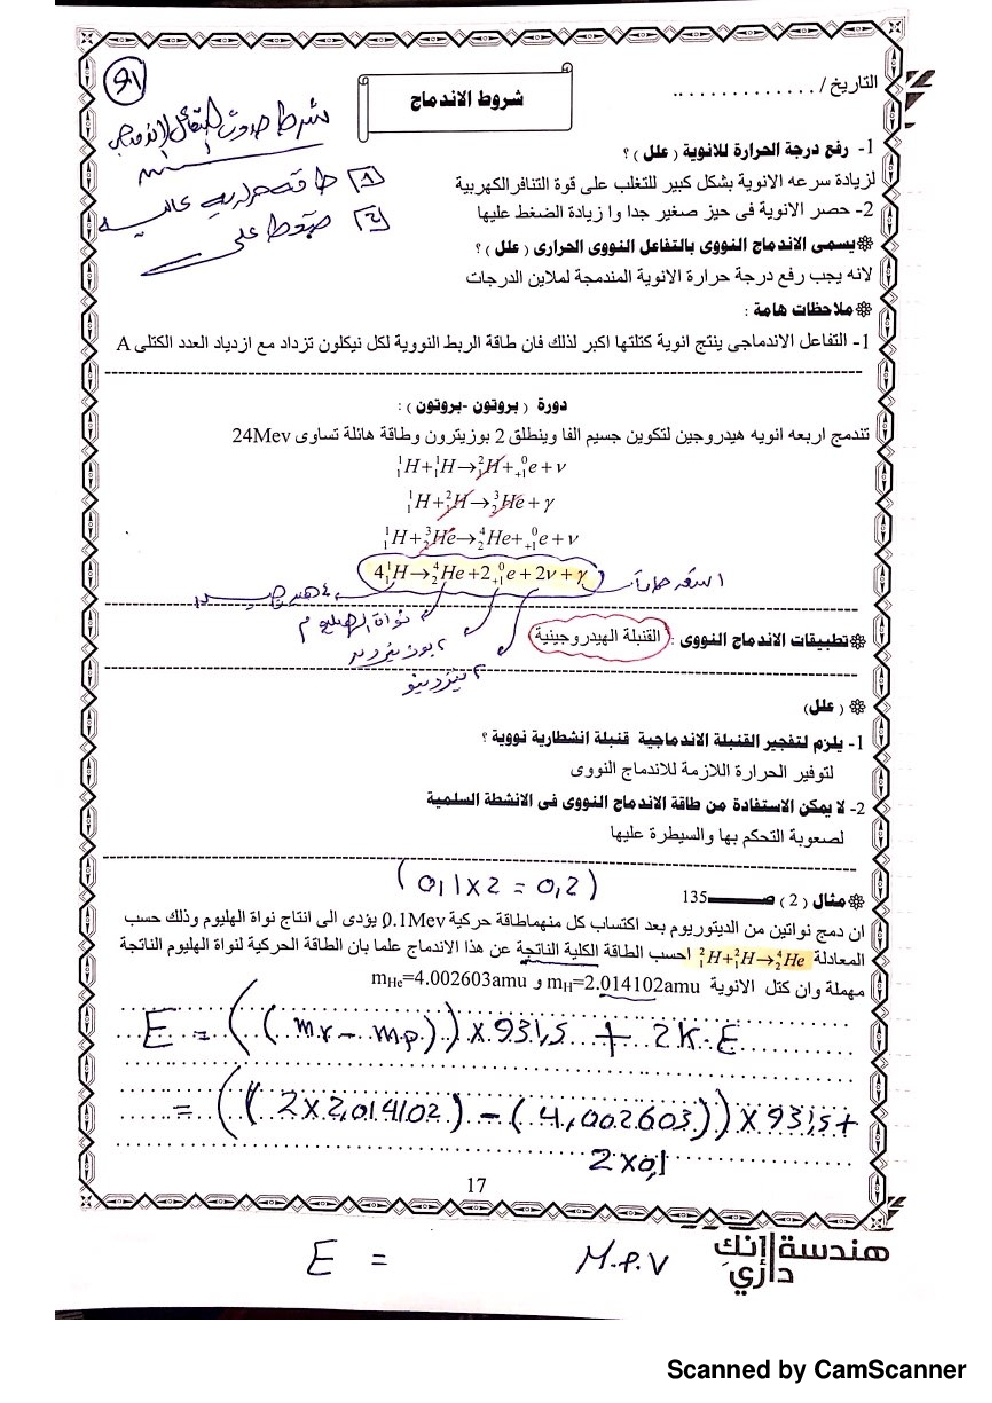 التاريخ / ..............
شروط الاندماج
91
شرط حدوث التفاعل الاندماجي
1 طاقه حراريه عاليه
2 ضغوط على
1- رفع درجة الحرارة للانوية ( علل ) ؟
لزيادة سرعه الانوية بشكل كبير للتغلب على قوة التنافرالكهربية
2- حصر الانوية فى حيز صغير جدا وا زيادة الضغط عليها
يسمى الاندماج النووى بالتفاعل النووى الحرارى ( علل ) ؟
لانه يجب رفع درجة حرارة الانوية المندمجة لملاين الدرجات
ملاحظات هامة :
1- التفاعل الاندماجى ينتج انوية كتلتها اكبر لذلك فان طاقة الربط النووية لكل نيكلون تزداد مع ازدياد العدد الكتلى A
دورة ( بروتون -بروتون ) :
تندمج اربعه انويه هيدروجين لتكوين جسيم الفا وينطلق 2 بوزيترون وطاقة هائلة تساوى 24Mev
¹₁H+¹₁H→²₁H+⁰₊₁e+ν
¹₁H+²₁H→³₂He+γ
¹₁H+³₂He→⁴₂He+⁰₊₁e+ν
4¹₁H→⁴₂He+2⁰₊₁e+2ν+γ
نواة الهليوم
2 بوزيترون
2 نيوترينو
تطبيقات الاندماج النووى : القنبلة الهيدروجينية
( علل)
1- يلزم لتفجير القنبلة الاندماجية قنبلة انشطارية نووية ؟
لتوفير الحرارة اللازمة للاندماج النووى
2- لا يمكن الاستفادة من طاقة الاندماج النووى فى الانشطة السلمية
لصعوبة التحكم بها والسيطرة عليها
(0,1x2 = 0,2)
مثال ( 2 ) صـــــــ 135
ان دمج نواتين من الديتوريوم بعد اكتساب كل منهماطاقة حركية 0.1Mev يؤدى الى انتاج نواة الهليوم وذلك حسب
المعادلة ²₁H+²₁H→⁴₂He احسب الطاقة الكلية الناتجة عن هذا الاندماج علما بان الطاقة الحركية لنواة الهليوم الناتجة
مهملة وان كتل الانوية mH=2.014102amu و mHe=4.002603amu
E = ((m.r - m.p)) x 931,5 + 2K.E
= ((2x2,014102) - (4,002603)) x 931,5 +
2x0,1
17
E = M.e.V
هندسة إنك داري
Scanned by CamScanner